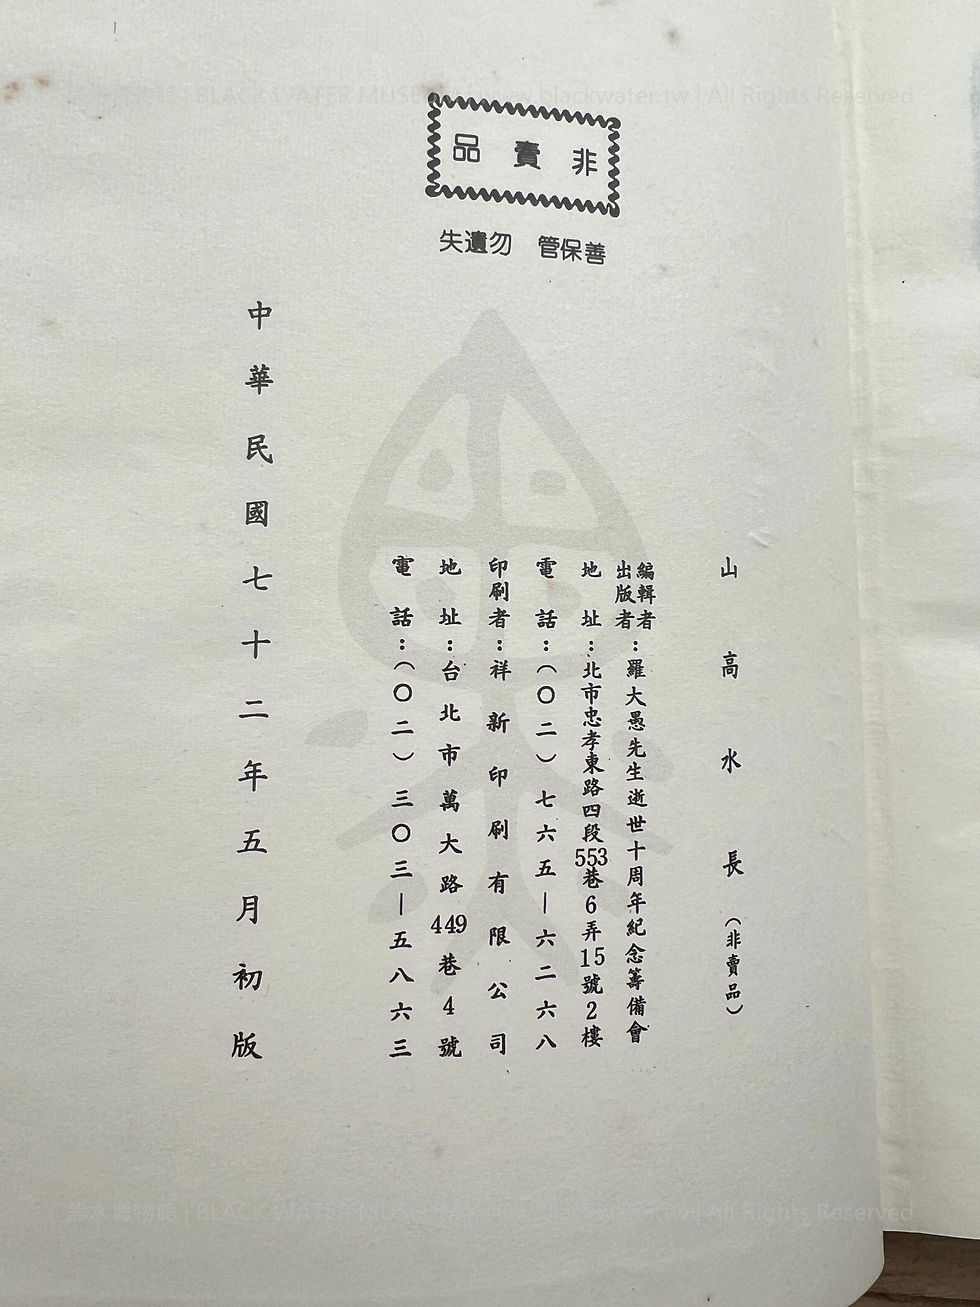 黑水博物館 | BLACK WATER MUSEUM | www.blackwater.tw | All Rights Reserved
非賣品
善保管 勿遺失
山高水長(非賣品)
編輯者
出版者:羅大愚先生逝世十周年紀念籌備會
地址:北市忠孝東路四段553巷6弄15號2樓
電話:(〇二)七六五—六二六八
印刷者:祥新印刷有限公司
地址:台北市萬大路449巷4號
電話:(〇二)三〇三—五八六三
中華民國七十二年五月初版
黑水博物館 | BLACK WATER MUSEUM | www.blackwater.tw | All Rights Reserved